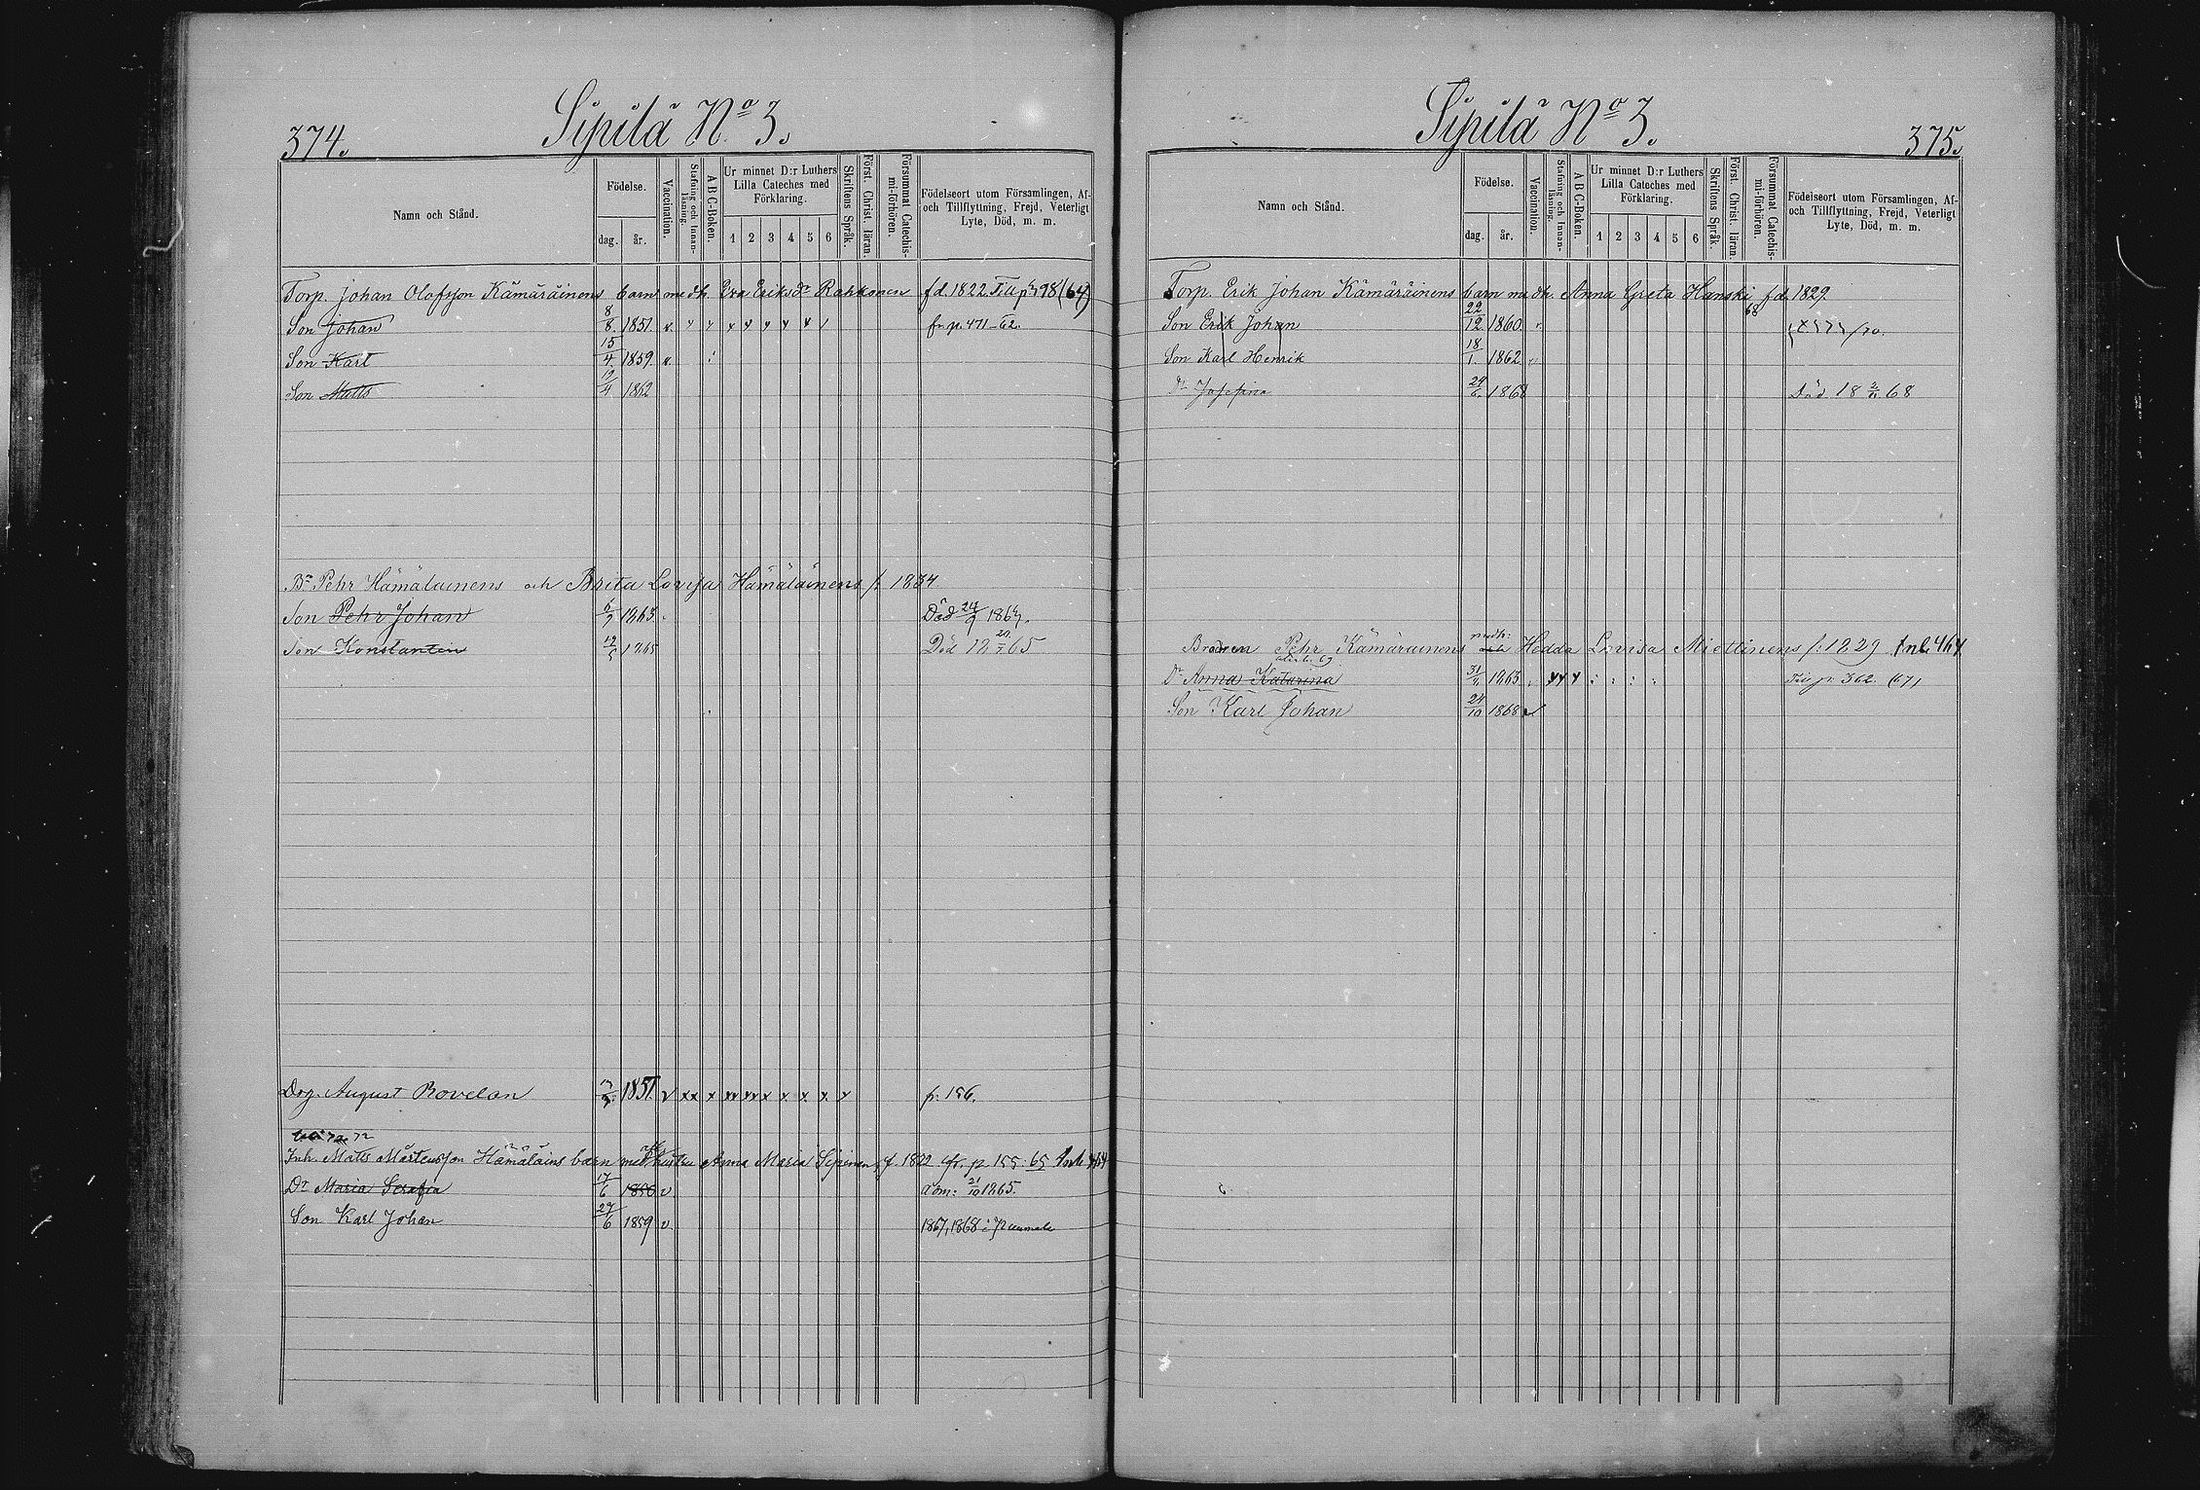 374.
Sipilä No 3.
Namn och Stånd.
Födelse.
dag.
år.
Vaccination.
Stafning och Innan-läsning.
A B C-Boken.
Ur minnet D:r Luthers Lilla Cateches med Förklaring.
1 2 3 4 5 6
Skriftens Språk.
Först. Christ. läran.
Försummat Catechis-mi-förhören.
Födelseort utom Församlingen, Af- och Tillflyttning, Frejd, Veterligt Lyte, Död, m. m.
Torp. Johan Olofsson Kämäräinens barn med h. Eva Eriksdr Rahkonen fd. 1822. Till p. 498 (64)
Son Johan 8/8 1851. v. fr. p. 471-62.
Son Karl 15/4. 1859. v.
Son Matts 12/4 1862
Br Pehr Hämäläinens och Brita Lovisa Hämäläinens f. 1834
Son Pehr Johan 1863. Död 24/9 1867.
Son Konstantin 12/5 1865 Död 18 65
Drg. August Rovelan 1851. v xx x xx xx x x x x x p. 156.
Inh. Matts Mårtensson Hämäläins barn med hustru Anna Maria Sipinen, f. 1822 fr. p. 155: 65
Dr Maria Serafia 17/6 1856 v. adm: 21/10 1865.
Son Karl Johan 27/6 1859 v. 1867, 1868 i Puumala
375.
Sipilä No 3.
Namn och Stånd.
Födelse.
dag.
år.
Vaccination.
Stafning och Innan-läsning.
A B C-Boken.
Ur minnet D:r Luthers Lilla Cateches med Förklaring.
1 2 3 4 5 6
Skriftens Språk.
Först. Christ. läran.
Försummat Catechis-mi-förhören.
Födelseort utom Församlingen, Af- och Tillflyttning, Frejd, Veterligt Lyte, Död, m. m.
Torp. Erik Johan Kämäräinens barn med h. Anna Greta Hanski fd. 1829.
68
Son Erik Johan 22/12 1860. v.
Son Karl Henrik 18/1. 1862
Dr Josefina 1868 Död 18 68
Brodren Pehr Kämäräinens med h: Hedda Lovisa Miettinens f: 1829
Dr Anna Katarina 1863 Till p. 362. (67)
Son Karl Johan 24/10 1868 v